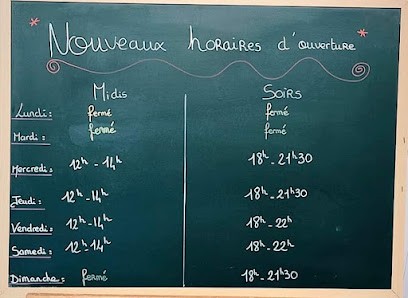 Nouveaux horaires d'ouverture
Midis Soirs
Lundi : fermé fermé
Mardi : fermé fermé
Mercredi : 12h - 14h 18h - 21h30
Jeudi : 12h - 14h 18h - 21h30
Vendredi : 12h - 14h 18h - 22h
Samedi : 12h - 14h 18h - 22h
Dimanche : fermé 18h - 21h30